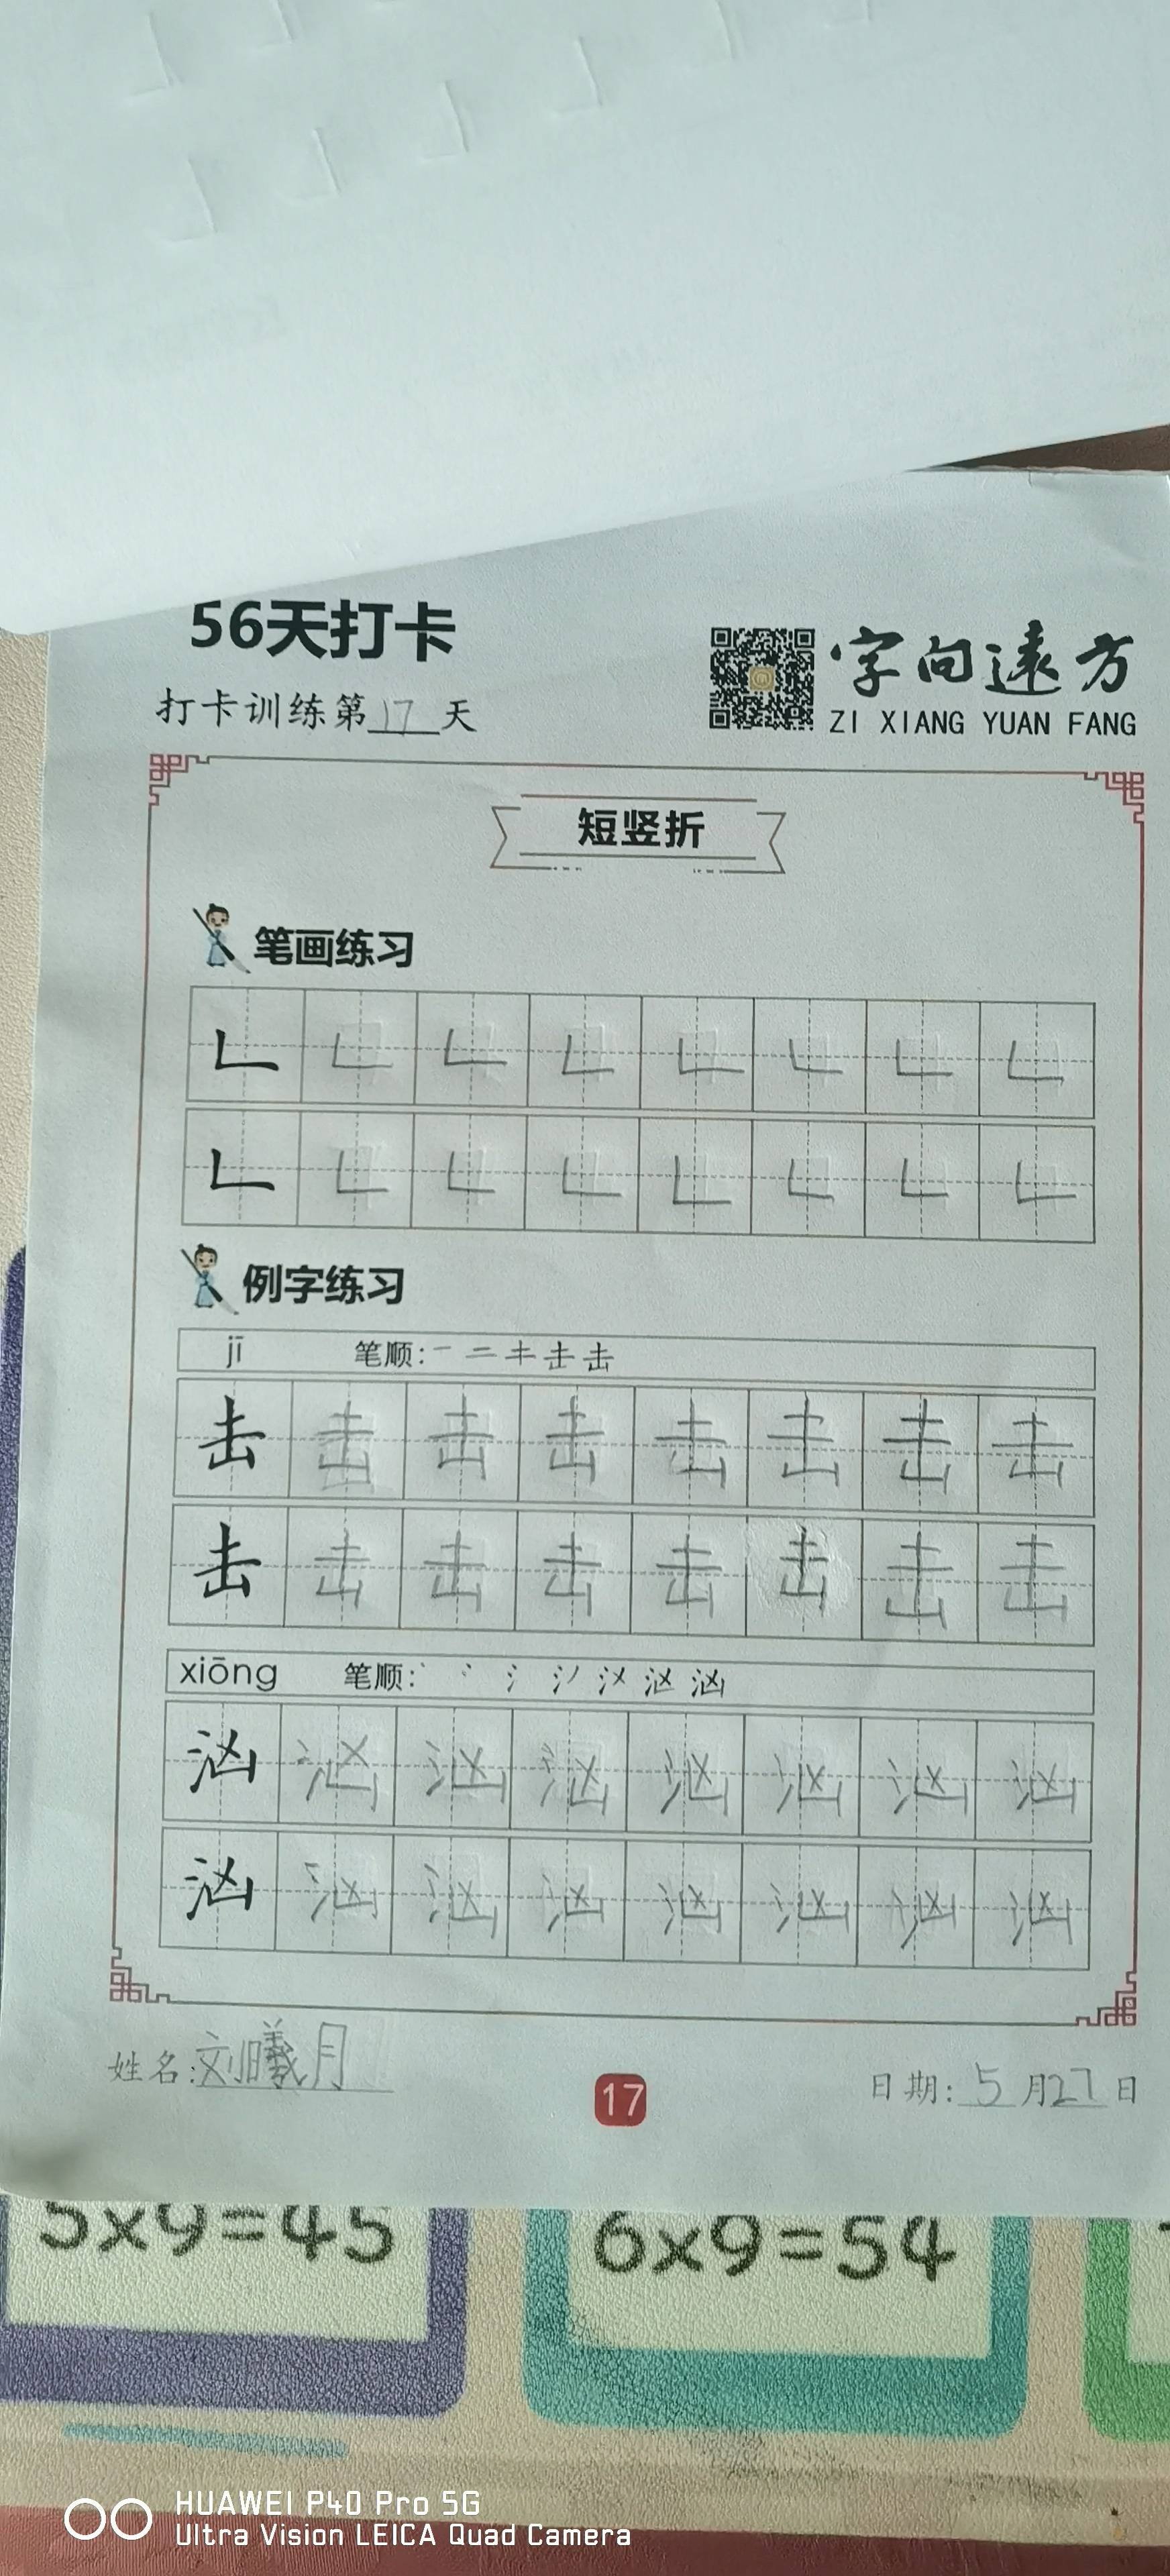 56天打卡
打卡训练第17天
字向遠方
ZI XIANG YUAN FANG
短竖折
笔画练习
𠃊 𠃊 𠃊 𠃊 𠃊 𠃊 𠃊 𠃊
𠃊 𠃊 𠃊 𠃊 𠃊 𠃊 𠃊 𠃊
例字练习
jī 笔顺: 一 二 キ 击 击
击 击 击 击 击 击 击 击
击 击 击 击 击 击 击 击
xiōng 笔顺: 丶 冫 氵 汹
汹 汹 汹 汹 汹 汹 汹 汹
汹 汹 汹 汹 汹 汹 汹 汹
姓名:刘曦月
17
日期: 5 月27日
5x9=45 6x9=54
HUAWEI P40 Pro 5G
Ultra Vision LEICA Quad Camera